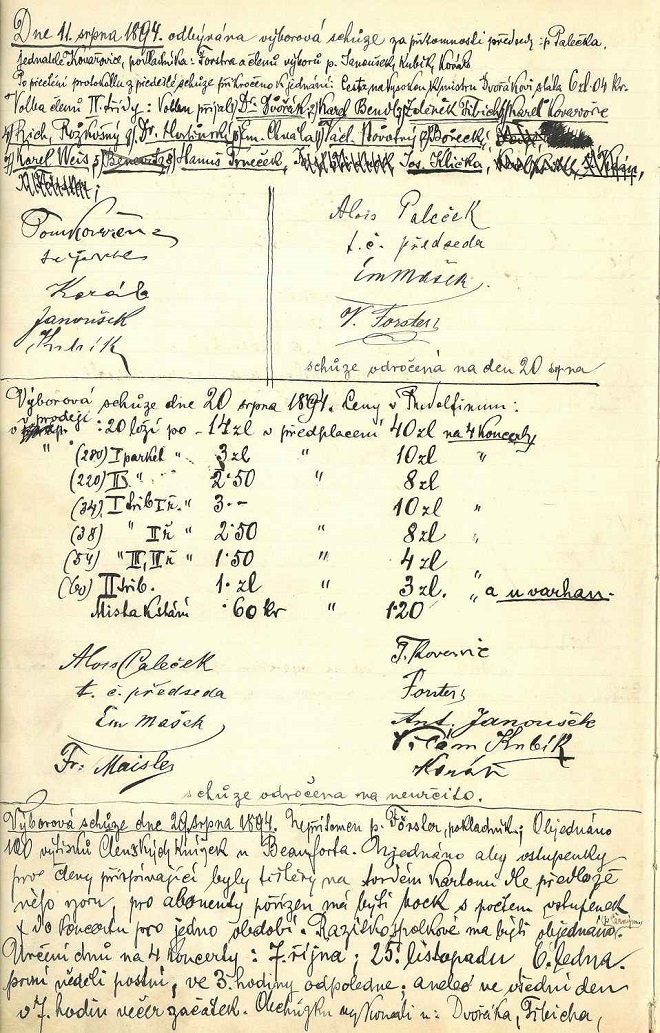 Dne 11. srpna 1894. odbývána výborová schůze za přítomnosti předsedy: p. Palečka,
jednatele Kovařovice, pokladníka: Förstra a členů výboru p. Janouška, Kubík, Koráb
Po přečtení protokollu z předešlé schůze přikročeno k jednání: Cesta na Vysokou k mistru Dvořákovi stála 6 zl. 04 kr.
Volba členů II. třídy: Volbu přijali Dr. Dvořák, Karel Bendl, Zdeněk Fibich, Karel Kovařovic
Rich. Rozkošný, Dr. Hostinský, Em. Chvála, Václ. Novotný, Bořecký,
Karel Weis, Hanuš Trneček, Jos. Klička,
Alois Paleček
t. č. předseda
Em Mašek
V. Förster
Koráb
Janoušek
Kubík
schůze odročená na den 20 srpna
Výborová schůze dne 20 srpna 1894. Ceny v Rudolfinum:
v prodeji : 20 loží po - 14 zl v předplacení 40 zl na 4 koncerty
" (280) I parket " 3 zl " 10 zl "
(220) II " " 2·50 8 zl
(34) I trib I ř. " 3·- 10 zl "
(38) " II ř " 2·50 " 8 zl "
(54) " III, II ř " 1·50 " 4 zl "
(60) II trib. 1· zl " 3 zl. " a u varhan.
Místa k stání ·60 kr " 1·20
Alois Paleček
t. č. předseda
Em Mašek
Fr. Maisler
Förster
Ant. Janoušek
Vilém Kubík
Koráb
schůze odročena na neurčito.
Výborová schůze dne 29 srpna 1894. Nepřítomen p. Förster, pokladník; Objednáno
100 výtisků členských knížek u Beauforta. Ujednáno aby vstupenky
pro členy přispívající byly tištěny na tvrdém kartonu dle předlože
ného vzoru, pro abonenty pořízen má býti bock s počtem vstupenek
do koncertu pro jedno období. Razítko spolkové má býti objednáno.
Určení dnů na 4 koncerty: 7. října; 25. listopadu 6. ledna.
první neděli postní, ve 3. hodiny odpoledne; aneb ve všední den
o 7. hodin večer začátek. Obchůzku vykonali u: Dvořáka, Fibicha,